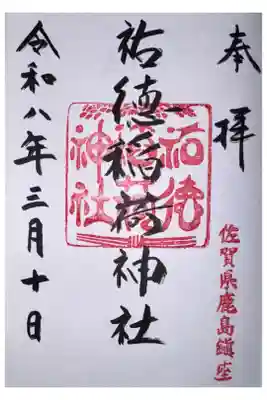 奉拝
佐賀県鹿島鎮座
祐徳稲荷神社
祐徳稲荷神社
令和八年三月十日